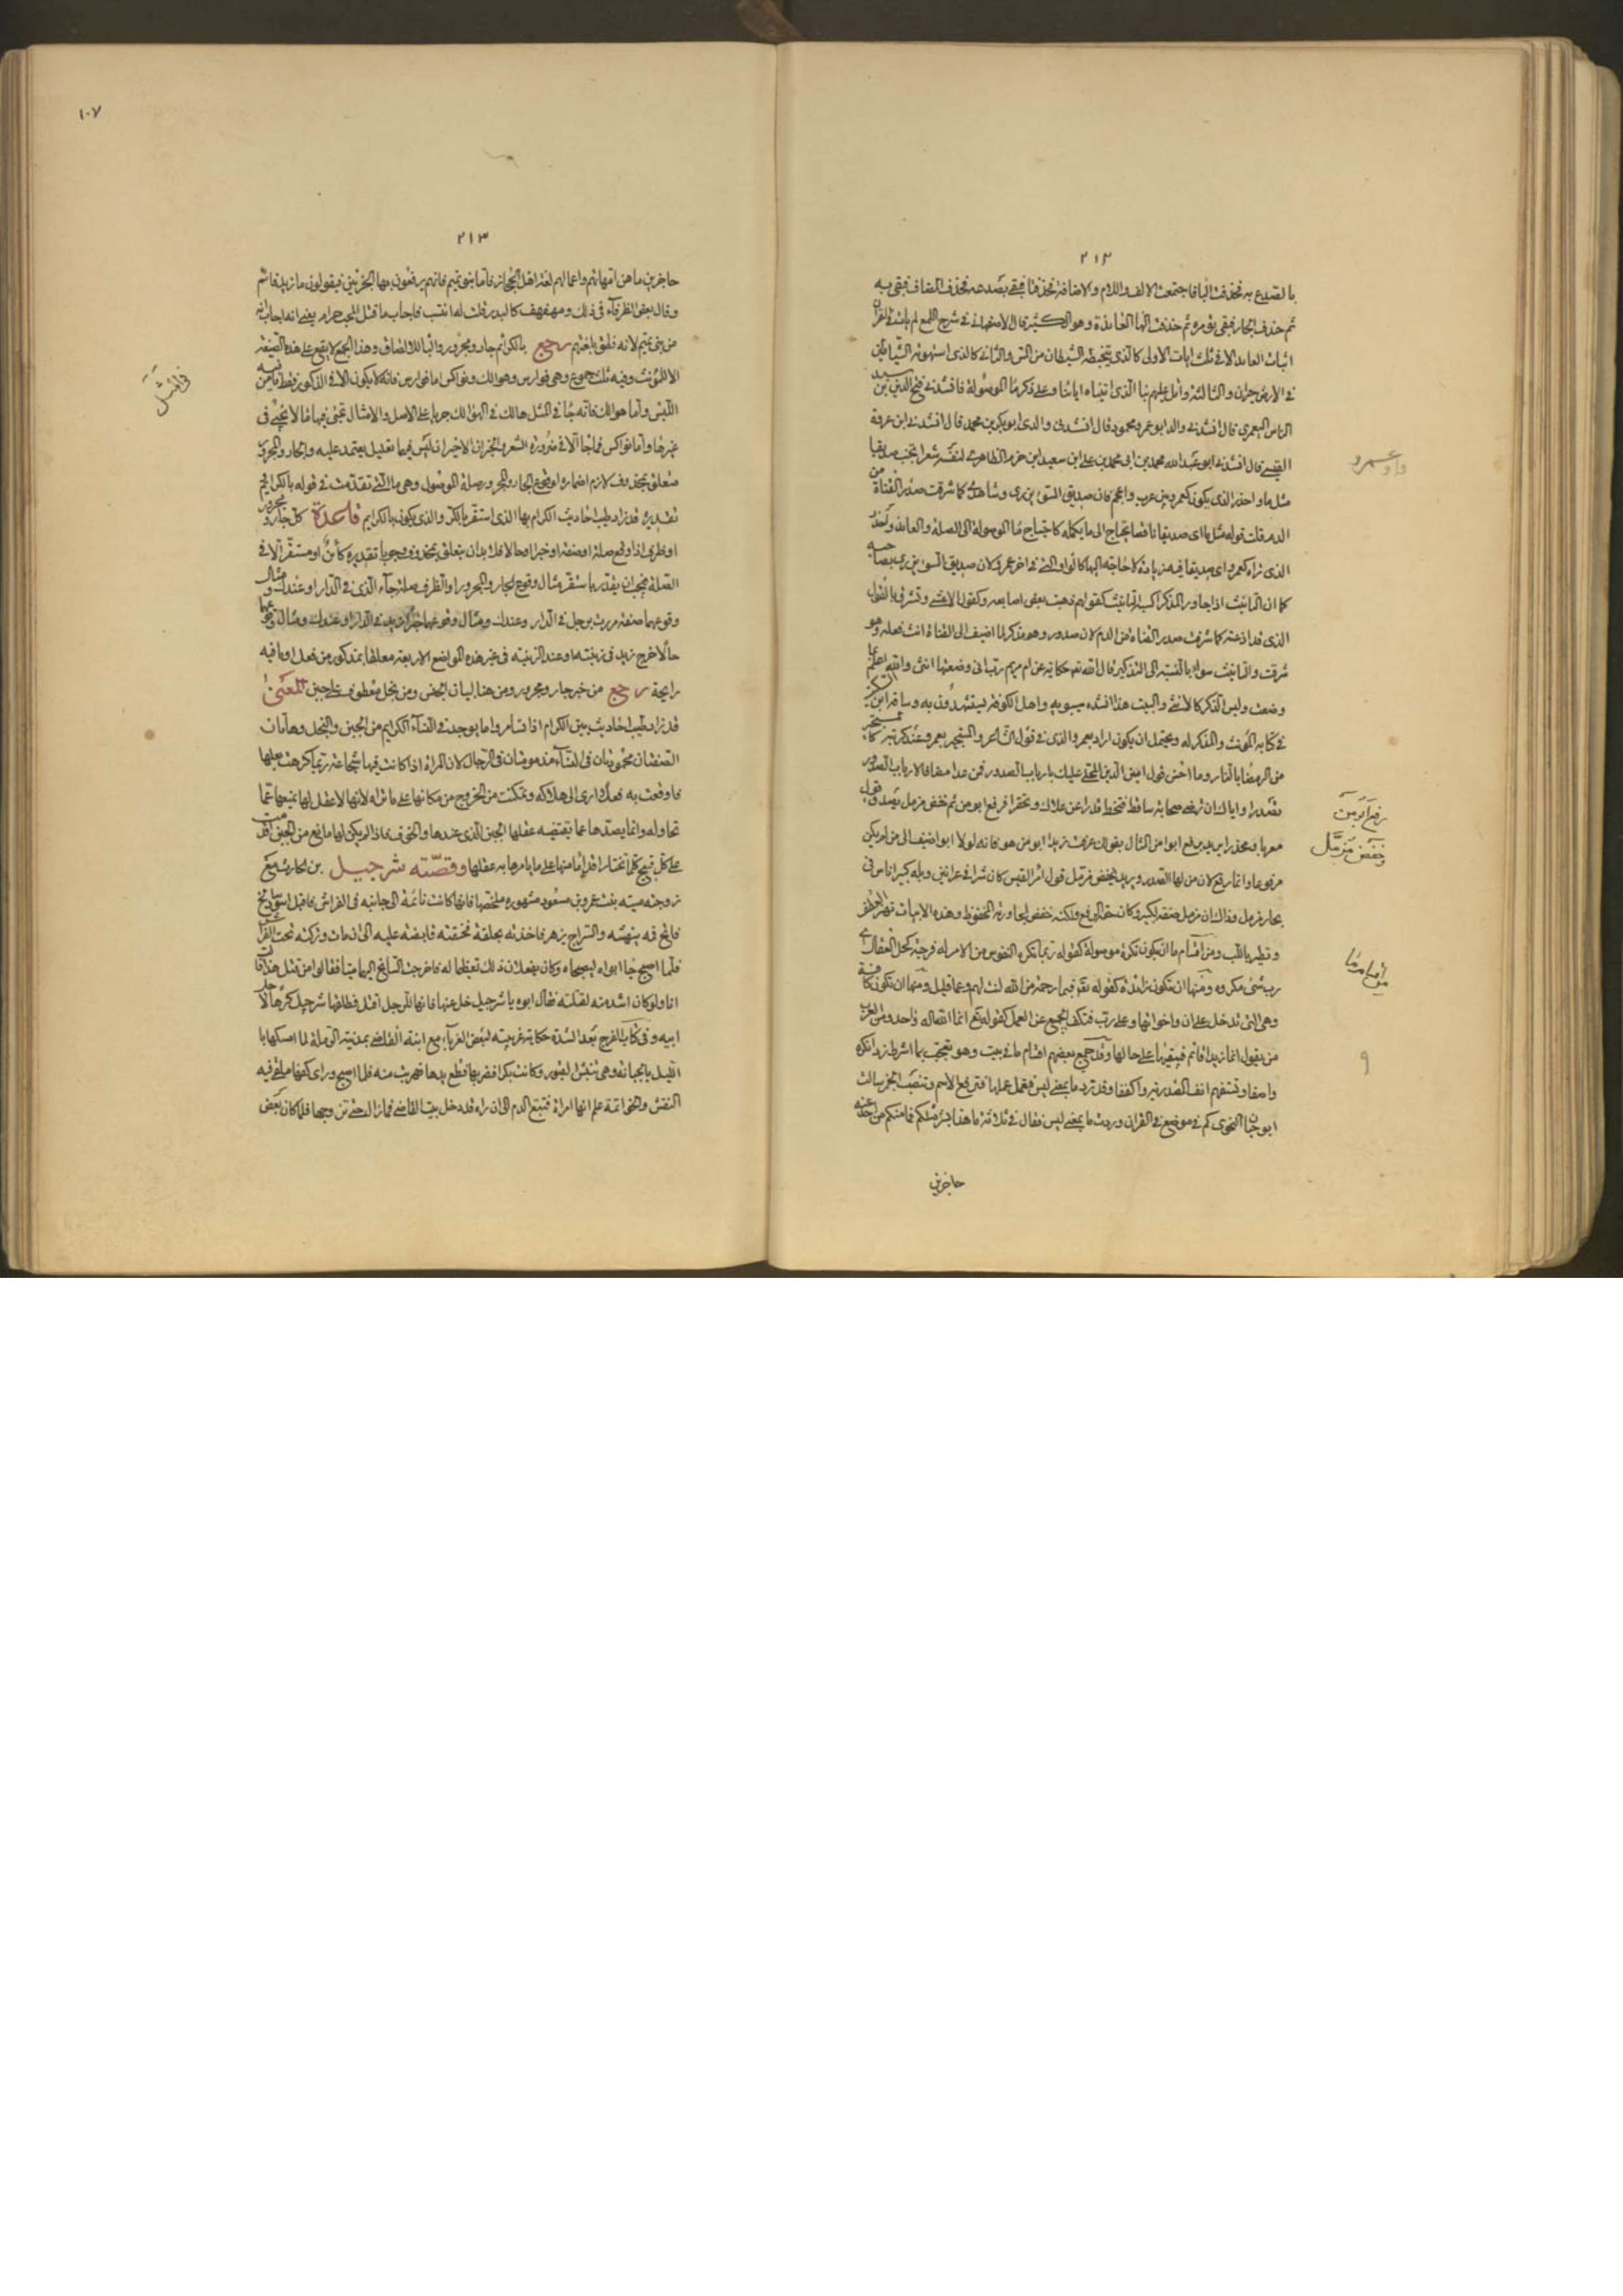 ٢١٢
بالصدع به فحذفت البا فاجتمعت الالف واللام والاضافة فحذفتا فبقى بصدعه فحذف المضاف فبقى به
ثم حذف الجار فبقى يؤمره ثم حذفت الها العايدة وهو الكثير قال الاصفهانى فى شرح اللمع لم يات فى القرآن
اثبات العايد الا فى ثلث ايات الاولى كالذى يتخبطه الشيطان من المس والثانى كالذى استهوته الشياطين
فى الارض حيران والثالثة واتل عليهم نبا الذى اتيناه اياتنا وعلى ذكر ما الموصولة فانشدنى فتح الدين بن سيد
الناس اليعمرى قال انشدنى والد ابو عمرو محمود قال انشدنى والدى ابو بكر بن محمد قال انشدنى ابن عرفة
القيسى قال انشدنى ابو عبد الله محمد بن ابى محمد بن على ابن سعيد ابن حزم الظاهرى لنفسه شعرا تجنب صديقا
مثل ما واحذر الذى يكون كعمرو بين عرب واعجم فان صديق السوء يزرى وشاهدى كما شرقت صدر القناة من
الدم قلت قوله مثل ما اى صديقا ناقصا يحتاج الى ما يكمله كاحتياج ما الموصولة الى الصلة والعايد واحذر
الذى تراه كعمرو اى صديقا فيه زيادة لا حاجة اليها كالواو التى فى اخر عمرو لان صديق السوء يزرى بصاحبه
كما ان التانيث اذا جاور المذكر اكسب التانيث كقولهم ذهبت بعض اصابعه وكقول الاعشى وتشرق بالقول
الذى قد اذعته كما شرقت صدر القناة من الدم لان صدور وهو مذكر لما اضيف الى القناة انث فعله وهو
شرقت والتانيث سوء بالنسبة الى التذكير قال الله تعالى حكاية عن ام مريم رب انى وضعتها انثى والله اعلم بما
وضعت وليس الذكر كالانثى والبيت هذا انشده سيبويه واهل الكوفة يستشهدون به وساقه ابن السكيت
فى كتابه المونث والمذكر له ويحتمل ان يكون اراد بعمرو الذى فى قول الشاعر والمستجير بعمرو عند كربته كالمستجير
من الرمضا بالنار وما احسن قول امين الدين المحلى عليك بارباب الصدور فمن غدا مضافا لارباب الصدور
تصدرا واياك ان ترضى صحابة ساقط فتنحط قدرا عن علاك وتحقرا فرفع ابو من ثم خفض مزمل يصدق قولى
معربا ومحذرا يريد برفع ابو من المثال بقولك عرفت زيدا ابو من هو فانه لولا ابو اضيف الى من لم يكن
مرفوعا وانما رفع لان من لها الصدر ويريد بخفض مزمل قول امرء القيس كان ثبيرا فى عرانين وبله كبير اناس فى
بجاد مزمل وذلك ان مزمل صفة لكبير وكان حقه الرفع ولكنه خفض لمجاورته المخفوظ وهذه الابيات تظهر الظفر
وتطير باللب ومن اقسام ما ان يكون نكرة موصولة كقوله ربما تكره النفوس من الامر له فرجة كحل العقال اى
رب شى مكروه ومنها ان تكون زايدة كقوله تعالى فبما رحمة من الله لنت لهم وعما قليل ومنها ان تكون كافة
وهى التى تدخل على ان واخواتها وعلى رب فتكف الجميع عن العمل كقوله تع انما الله اله واحد ومن العرب
من يقول انما زيدا قائم فيبقيها على حالها وقد جمع بعضهم اقسام ما فى بيت وهو تعجب بما اشرط زد انكره
واصفا وتستفهم انف المصدرية واكففا وقد ترد ما بمعنى ليس فتعمل عملها فترفع الاسم وتنصب الخبر سالت
ابو حيان النحوى كم فى موضع فى القران وردت ما بمعنى ليس فقال فى ثلاثة ما هذا بشرا مثلكم فما منكم من احد عنه
حاجزين
واو عمرو
رفع ابو من
وخفض مزمل
اقسام ما
٩
١٠٧
٢١٣
حاجزين ما هن امهاتهم واعمالهم لغة اهل الحجاز فاما بنو تميم فانهم يرفعون بها الجزئين فيقولون ما زيد قائم
وقال بعض الظرفاء فى ذلك ومهفهف كالبدر قلت له انتسب فاجاب ما قتل المحب حرام يعنى انه اجاب انه
من بنى تميم لانه نطق بلغتهم رجع بالكرائم جار ومجرور والباء للالصاق وهذا الجمع لا يقع على هذه الصيغة
الا للمؤنث وفيه ثلث جموع وهى فوارس وهوالك ونواكس اما فوارس فانه لا يكون الا فى الذكور فقط امن فيه
اللبس واما هوالك فانه جا فى المثل هالك فى الهوالك جريا على الاصل والامثال تجئ فيها ما لا يجئ فى
غيرها واما نواكس فما جا الا فى ضرورة الشعر والجزان الاخيران ليس فيهما تعليل يعتمد عليه والجار والمجرور
متعلق بمحذوف لازم اضماره لوقوع الجار والمجرور صلة الموصول وهى ما التى تقدمت فى قوله بالكرائم
تقديره قد زاد طيب احاديث الكرام بها الذى استقر بالكرائم والذى يكون بالكرائم قاعدة كل جار ومجرور
او ظرف اذا وقع صلة او صفة او خبرا او حالا فلا بد ان يتعلق بمحذوف وجوبا تقديره كائن او مستقر الا فى
الصلة فيجب ان يقدر باستقر مثال وقوع الجار والمجرور والظرف صلة جاء الذى فى الدار او عندك ومثال
وقوعهما صفة مررت برجل فى الدار وعندك ومثال وقوعهما خبرا زيد فى الدار او عندك ومثال وقوعهما
حالا خرج زيد فى زينته او عند الزينة فى غير هذه المواضع الاربعة معلقها بمذكور من فعل او ما فيه
رايحة رجع من خبر جار ومجرور ومن هنا لبيان الجنس ومن بخل معطوف على جبن المعنى
قد زاد طيب احاديث بين الكرام اذا تسامروا ما يوجد فى النساء الكرايم من الجبن والبخل وهاتان
الصفتان محمودتان فى النساء مذمومتان فى الرجال لان المراة اذا كانت فيها شجاعة ربما كرهت بعلها
فاوقعت به فعلا ادى الى هلاكه وتمكنت من الخروج من مكانها على ما تراه لانها لا عقل لها يمنعها عما
تحاوله وانما يصدها عما يقتضيه عقلها الجبن الذى عندها والخوف فاذا لم يكن لها مانع من الجبن اقدمت
على كل قبيح كلما تختار اقداما منها على ما يامرها به عقلها وقصته شرحبيل بن الحارث مع
زوجته مية بنت عمرو بن مسعود مشهورة ملخصها فانها كانت نائمة الى جانبه فى الفراش فاقبل اسود سالخ
فاتح فمه ينهشه والسراج يزهر فاخذته بحلقه فخنقته قابضة عليه الى ان مات وتركته تحت الفراش
فلما اصبح جا ابواه ليصبحاه وكان يفعلان ذلك تعظيما له فاخرجت السالخ اليهما ميتا فقالوا من قتل هذا قالت
انا ولو كان اشد منه لقتلته فقال ابوه يا شرحبيل خل عنها فانها للرجل اقتل فطلقها شرحبيل كرها لاجل
ابيه وفى كتاب الفرج بعد الشدة حكاية غريبة لبعض الغرباء مع ابنة القاضى بمدينة الرملة لما امسكها با
الليل بالجبانة وهى تنبش القبور وكانت بكرا فضربها فقطع يدها فهربت منه فلما اصبح وراى كفها ملقى فيه
النقش والخواتمة علم انها امراة فتتبع الدم الى ان راه قد دخل بيت القاضى فما زال حتى تزوجها فلما كان بعض
فى المثل